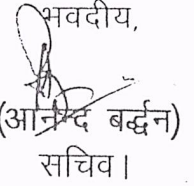 भवदीय,
(आनन्द बर्द्धन)
सचिव।